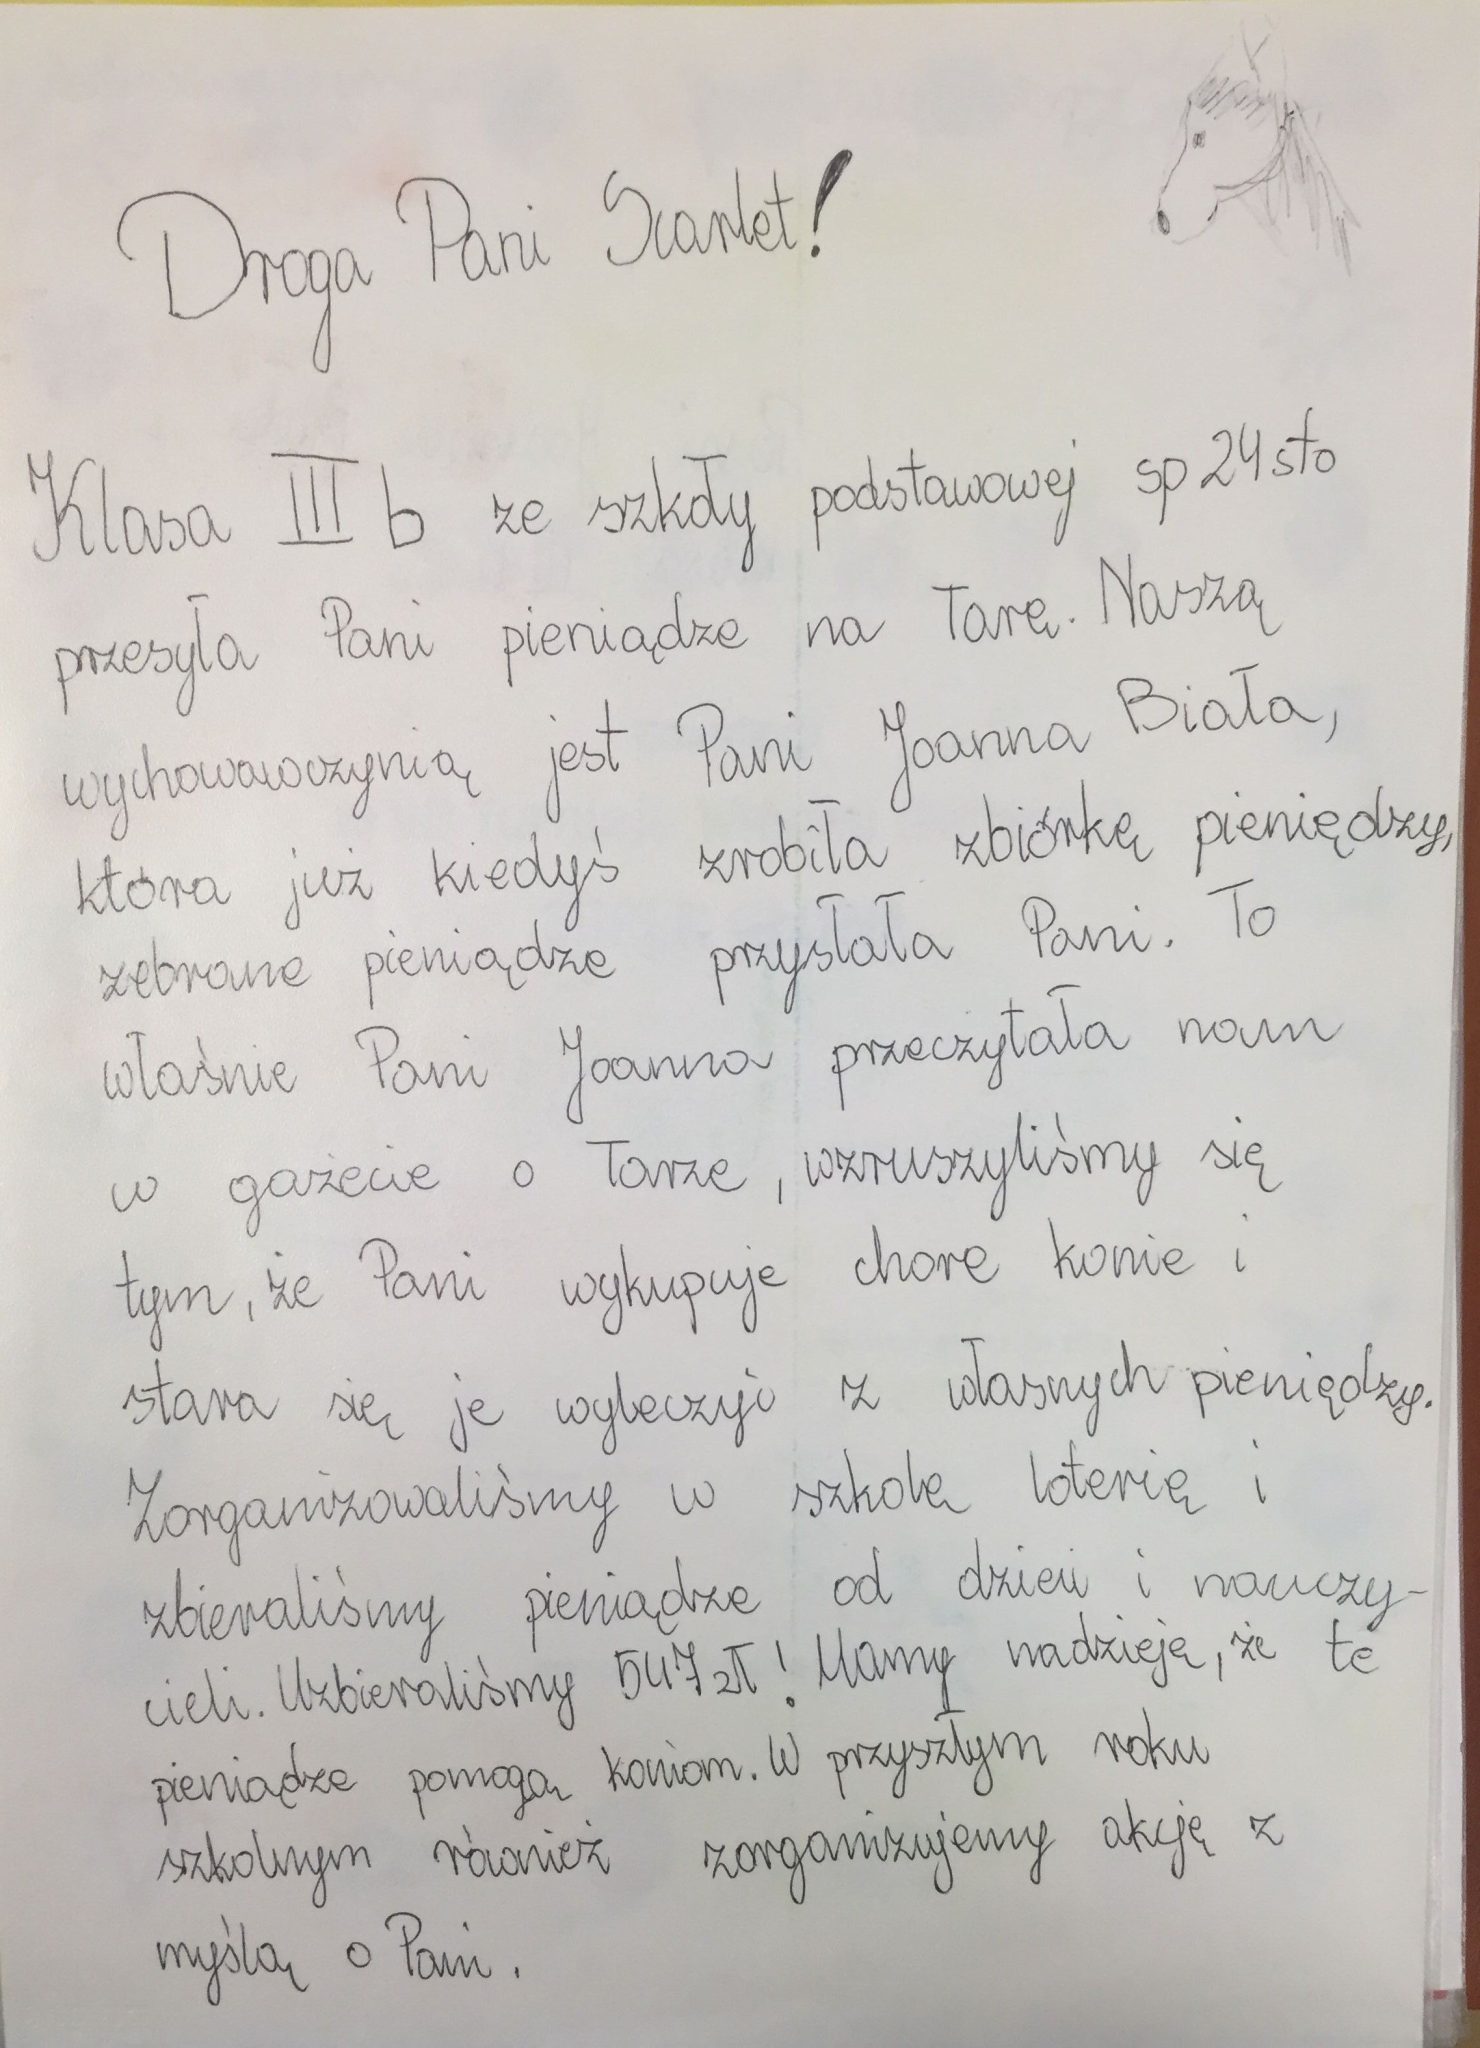 Droga Pani Scarlet!
Klasa III b ze szkoły podstawowej sp 24 sto
przesyła Pani pieniądze na Tarę. Naszą
wychowawczynią jest Pani Joanna Biała,
która już kiedyś zrobiła zbiórkę pieniędzy,
zebrane pieniądze przysłała Pani. To
właśnie Pani Joanna przeczytała nam
w gażecie o Tarze, wzruszyliśmy się
tym, że Pani wykupuje chore konie i
stara się je wyleczyć z własnych pieniędzy.
Zorganizowaliśmy w szkolę loterię i
zbieraliśmy pieniądze od dzieci i nauczy-
cieli. Uzbieraliśmy 547 zł! Mamy nadzieję, że te
pieniądze pomogą koniom. W przyszłym roku
szkolnym również zorganizujemy akcję z
myślą o Pani.